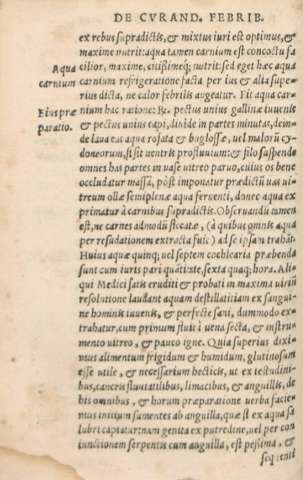 DE CVRAND. FEBRIB.
ex rebus supradictis, & mixtus iuri est optimus, &
maxime nutrit: aqua tamen carnium est concoctu fa
Aqua carnium
cilior, maxime, citissimeq; nutrit: sed eget hæc aqua
carnium refrigeratione facta per ius & alia supe-
rius dicta, ne calor febrilis augeatur. Fit aqua car-
Eius præparatio.
nium hac ratione: ℞. pectus unius gallinæ iuuenis
& pectus unius capi, diuide in partes minutas, dein-
de laua eas aqua rosata & buglossæ, uel malorū cy-
doneorum, si sit uentris profluuium: & filo suspende
omnes has partes in uase uitreo paruo, cuius os bene
occludatur massa, pōst imponatur prædictū uas ui-
treum ollæ semiplenæ aqua feruenti, donec aqua ex
primatur à carnibus supradictis. Obseruandū tamen
est, ne carnes admodū siccatæ, (à quibus omnis aqua
per resudationem extracta fuit) ad se ipsam trahāt.
Huius aquæ quinq; uel septem cochlearia præbenda
sunt cum iuris pari quātitate, sexta quaq; hora. Ali-
qui Medici satis eruditi & probati in maxima uiriū
resolutione laudant aquam destillatitiam ex sangui-
ne hominis iuuenis, & perfecte sani, dummodo ex-
trahatur, cum primum fluit à uena secta, & instru-
mento uitreo, & pauco igne. Quia superius dixi-
mus alimentum frigidum & humidum, glutinosum
esse utile, & necessarium hecticis, ut ex testudini-
bus, cancris fluuiatilibus, limacibus, & anguillis, de
his omnibus, & horum præparatione uerba facie-
mus initium sumentes ab anguilla, quæ st ex aqua sa
lubri capiatur: nam genita ex putredine, uel per con
iunctionem serpentis cum anguilla, est pessima, &
sequenti